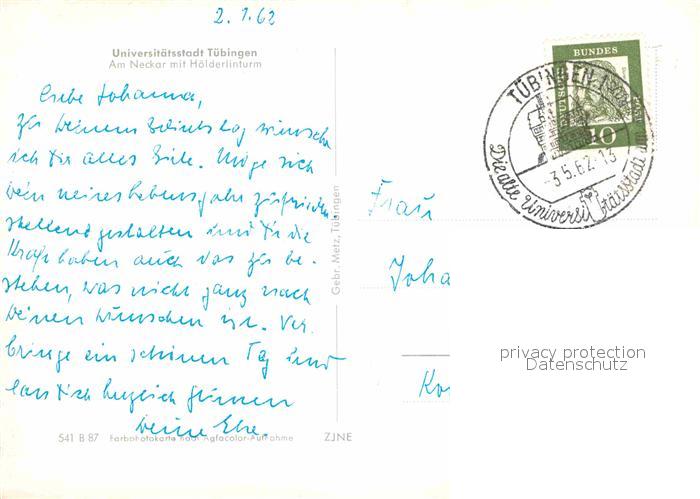 2. 1. 62
Universitätsstadt Tübingen
Am Neckar mit Hölderlinturm
Liebe Johanna,
zu Deinem Geburtstag wünsche
ich Dir alles Gute. Möge sich
Dein neues Lebensjahr zufrieden
stellend gestalten und Dir die
Kraft haben auch das zu be-
stehen, was nicht ganz nach
Deinen Wünschen ist. Ver-
bringe ein schönen Tag und
lass Dich herzlich grüssen
Deine
541 B 87 Farbfotokarte nach Agfacolor-Aufnahme ZJNE
Gebr. Metz, Tübingen
BUNDES
POST
DEUTSCHE
10
TÜBINGEN
-3.5.62-13
Die alte Universitätsstadt am
Frau
Joha
privacy protection
Datenschutz